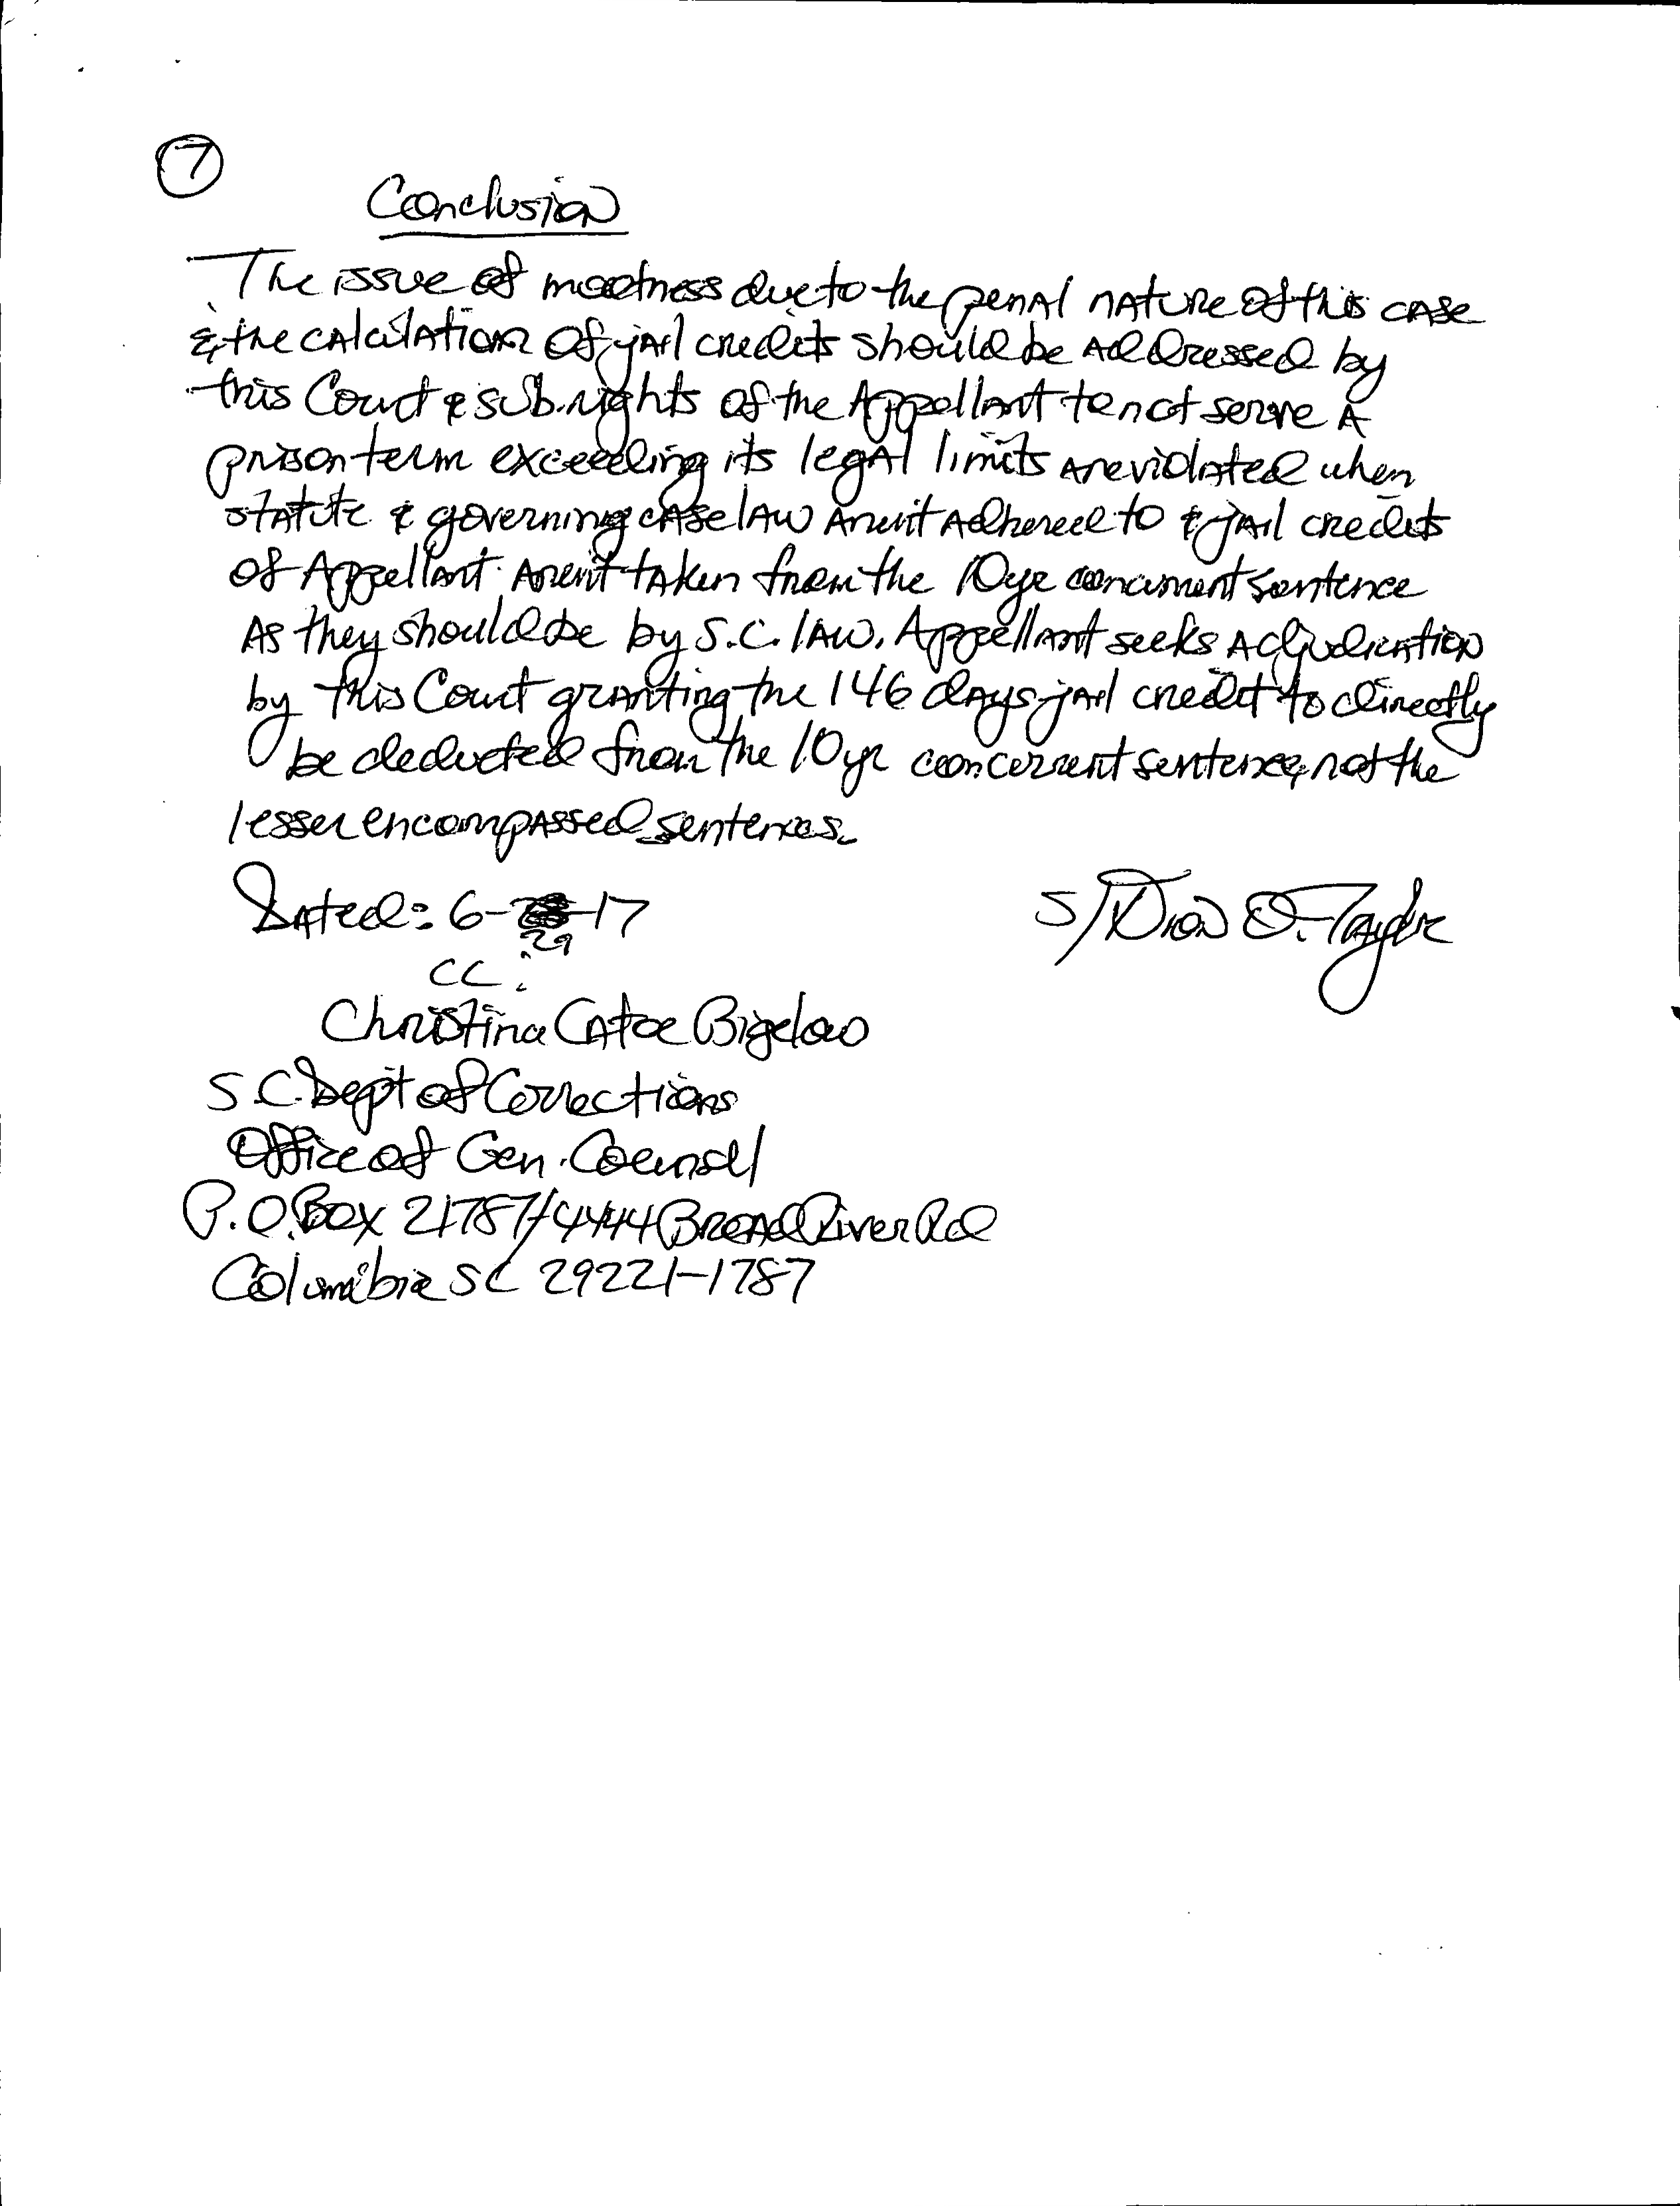 7
Conclusion
The issue of mootness due to the penal nature of this case
& the calculation of jail credits should be addressed by
this Court & sub. rights of the Appellant to not serve a
prison term exceeding its legal limits are violated when
statute & governing case law aren't adhered to & jail credits
of Appellant aren't taken from the 10yr concurrent sentence
As they should be by S.C. law. Appellant seeks adjudication
by this Court granting the 146 days jail credit to directly
be deducted from the 10yr concurrent sentence, not the
lesser encompassed sentences.
Dated: 6- -17 S/ Dion O. Taylor
29
CC:
Christina Catoe Bigelow
S.C. Dept of Corrections
Office of Gen. Counsel
P.O. Box 21787/4444 Broad River Rd
Columbia SC 29221-1787